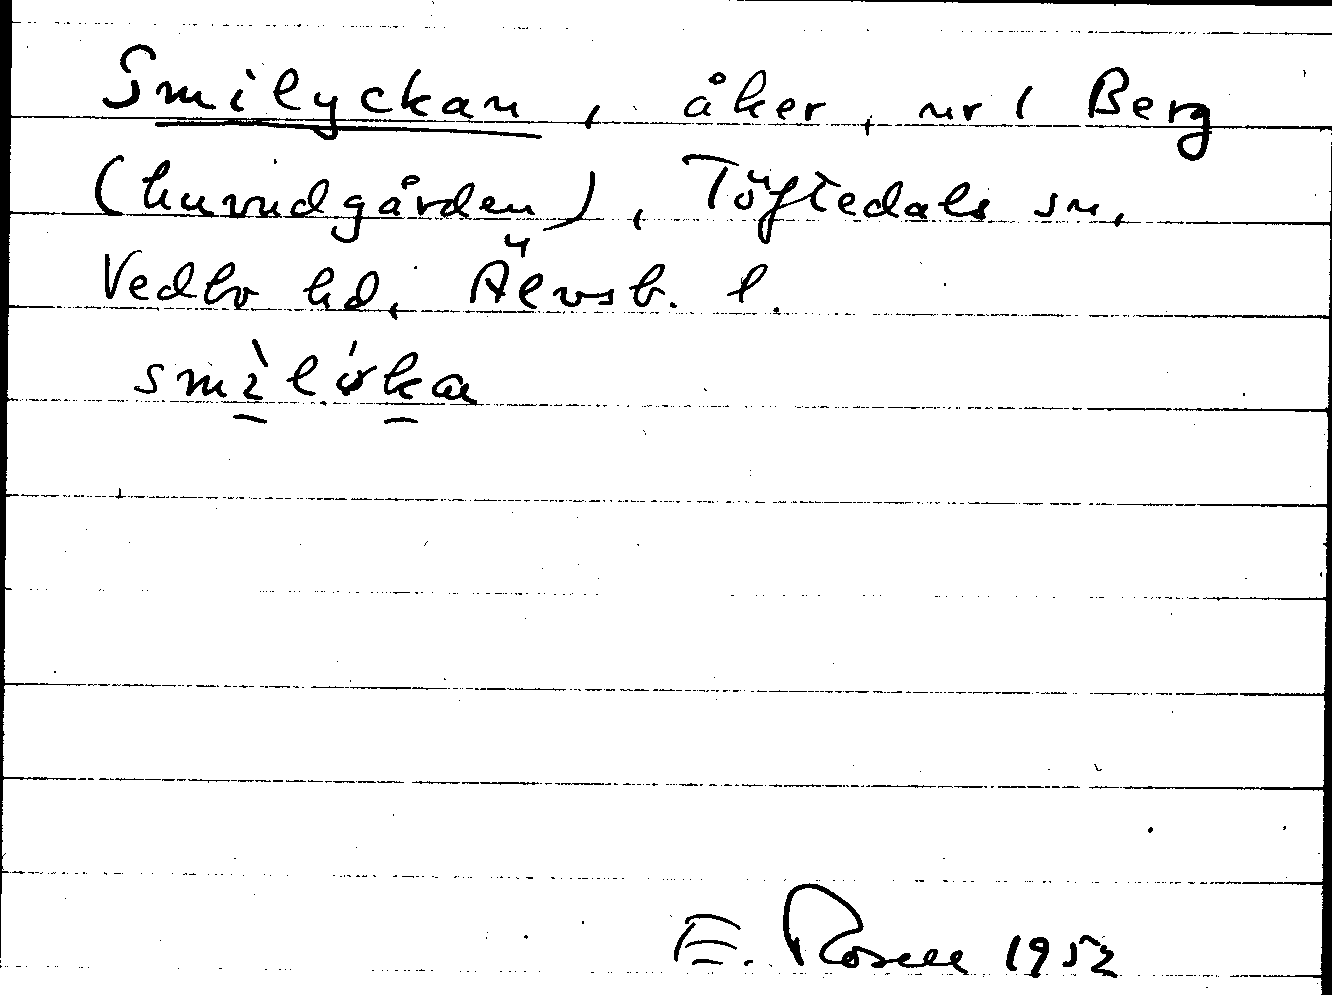 Smilyckan, åker, nr 1 Berg
(huvudgården), Töftedals sn,
Vedbo hd, Älvsb. l.
smì̱lỳḵa
E. Rosell 1952